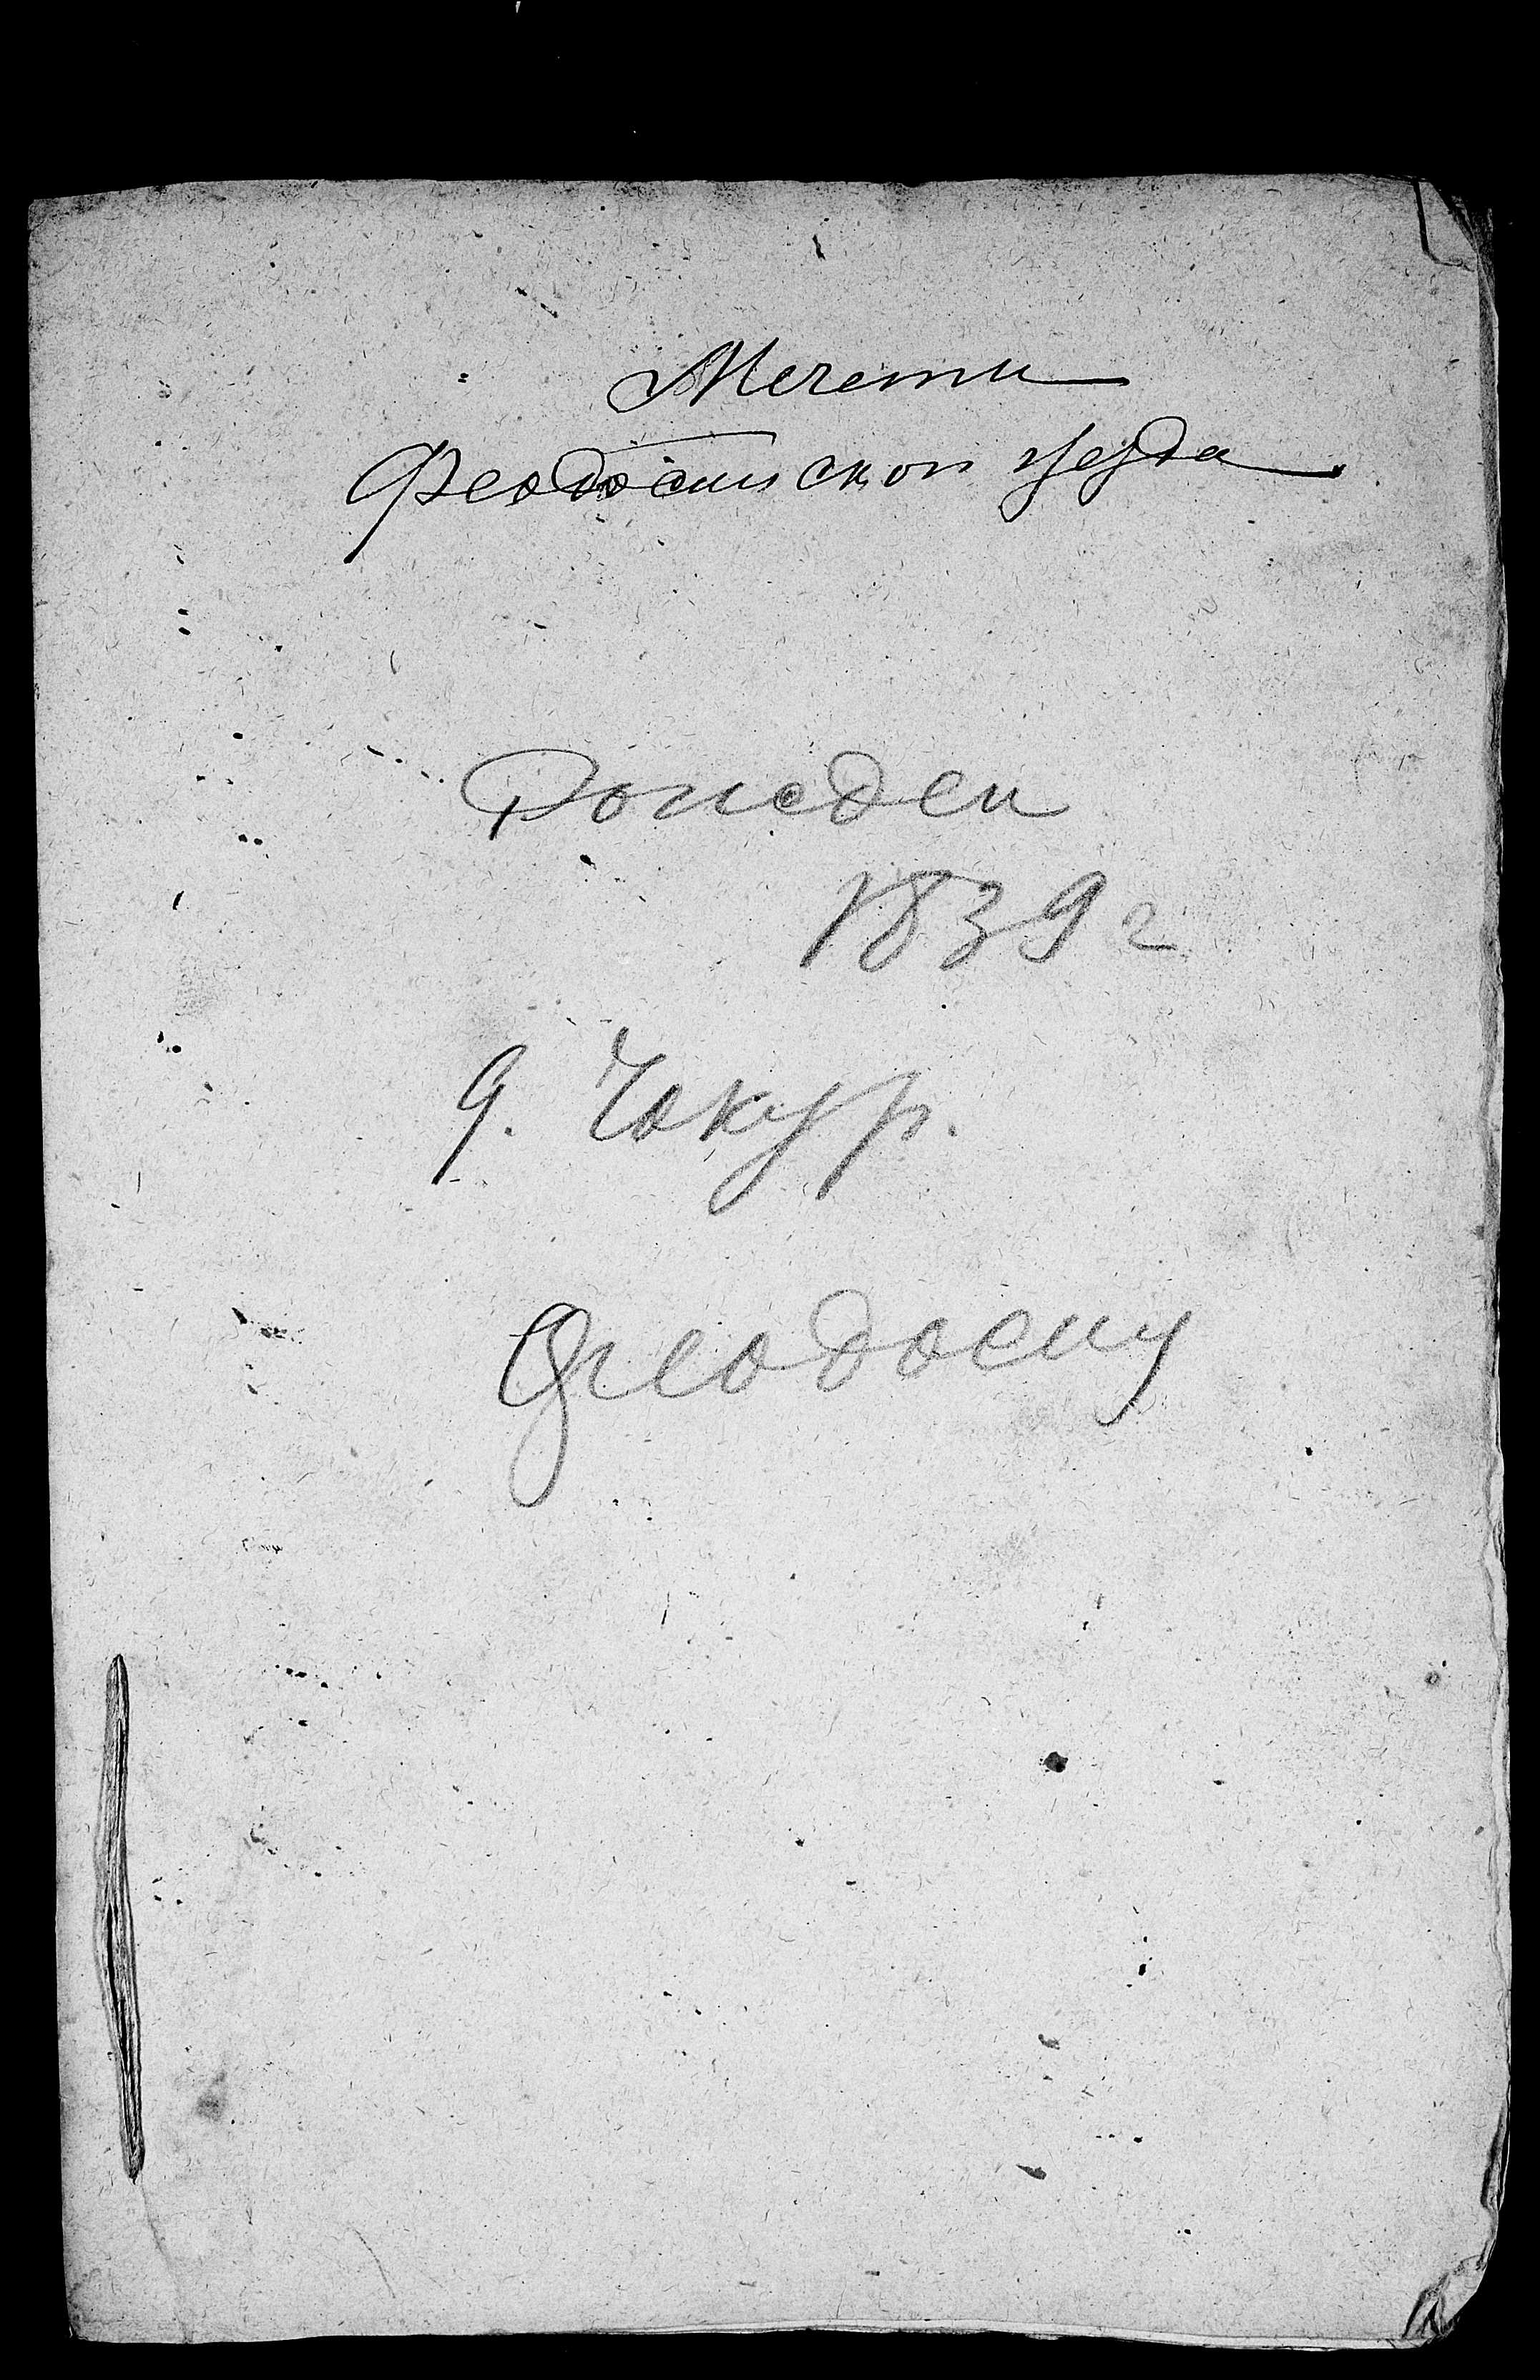 Мечети
Феодосийской уезда
Рожден
1839 г
д. Чокур.
Феодосиу